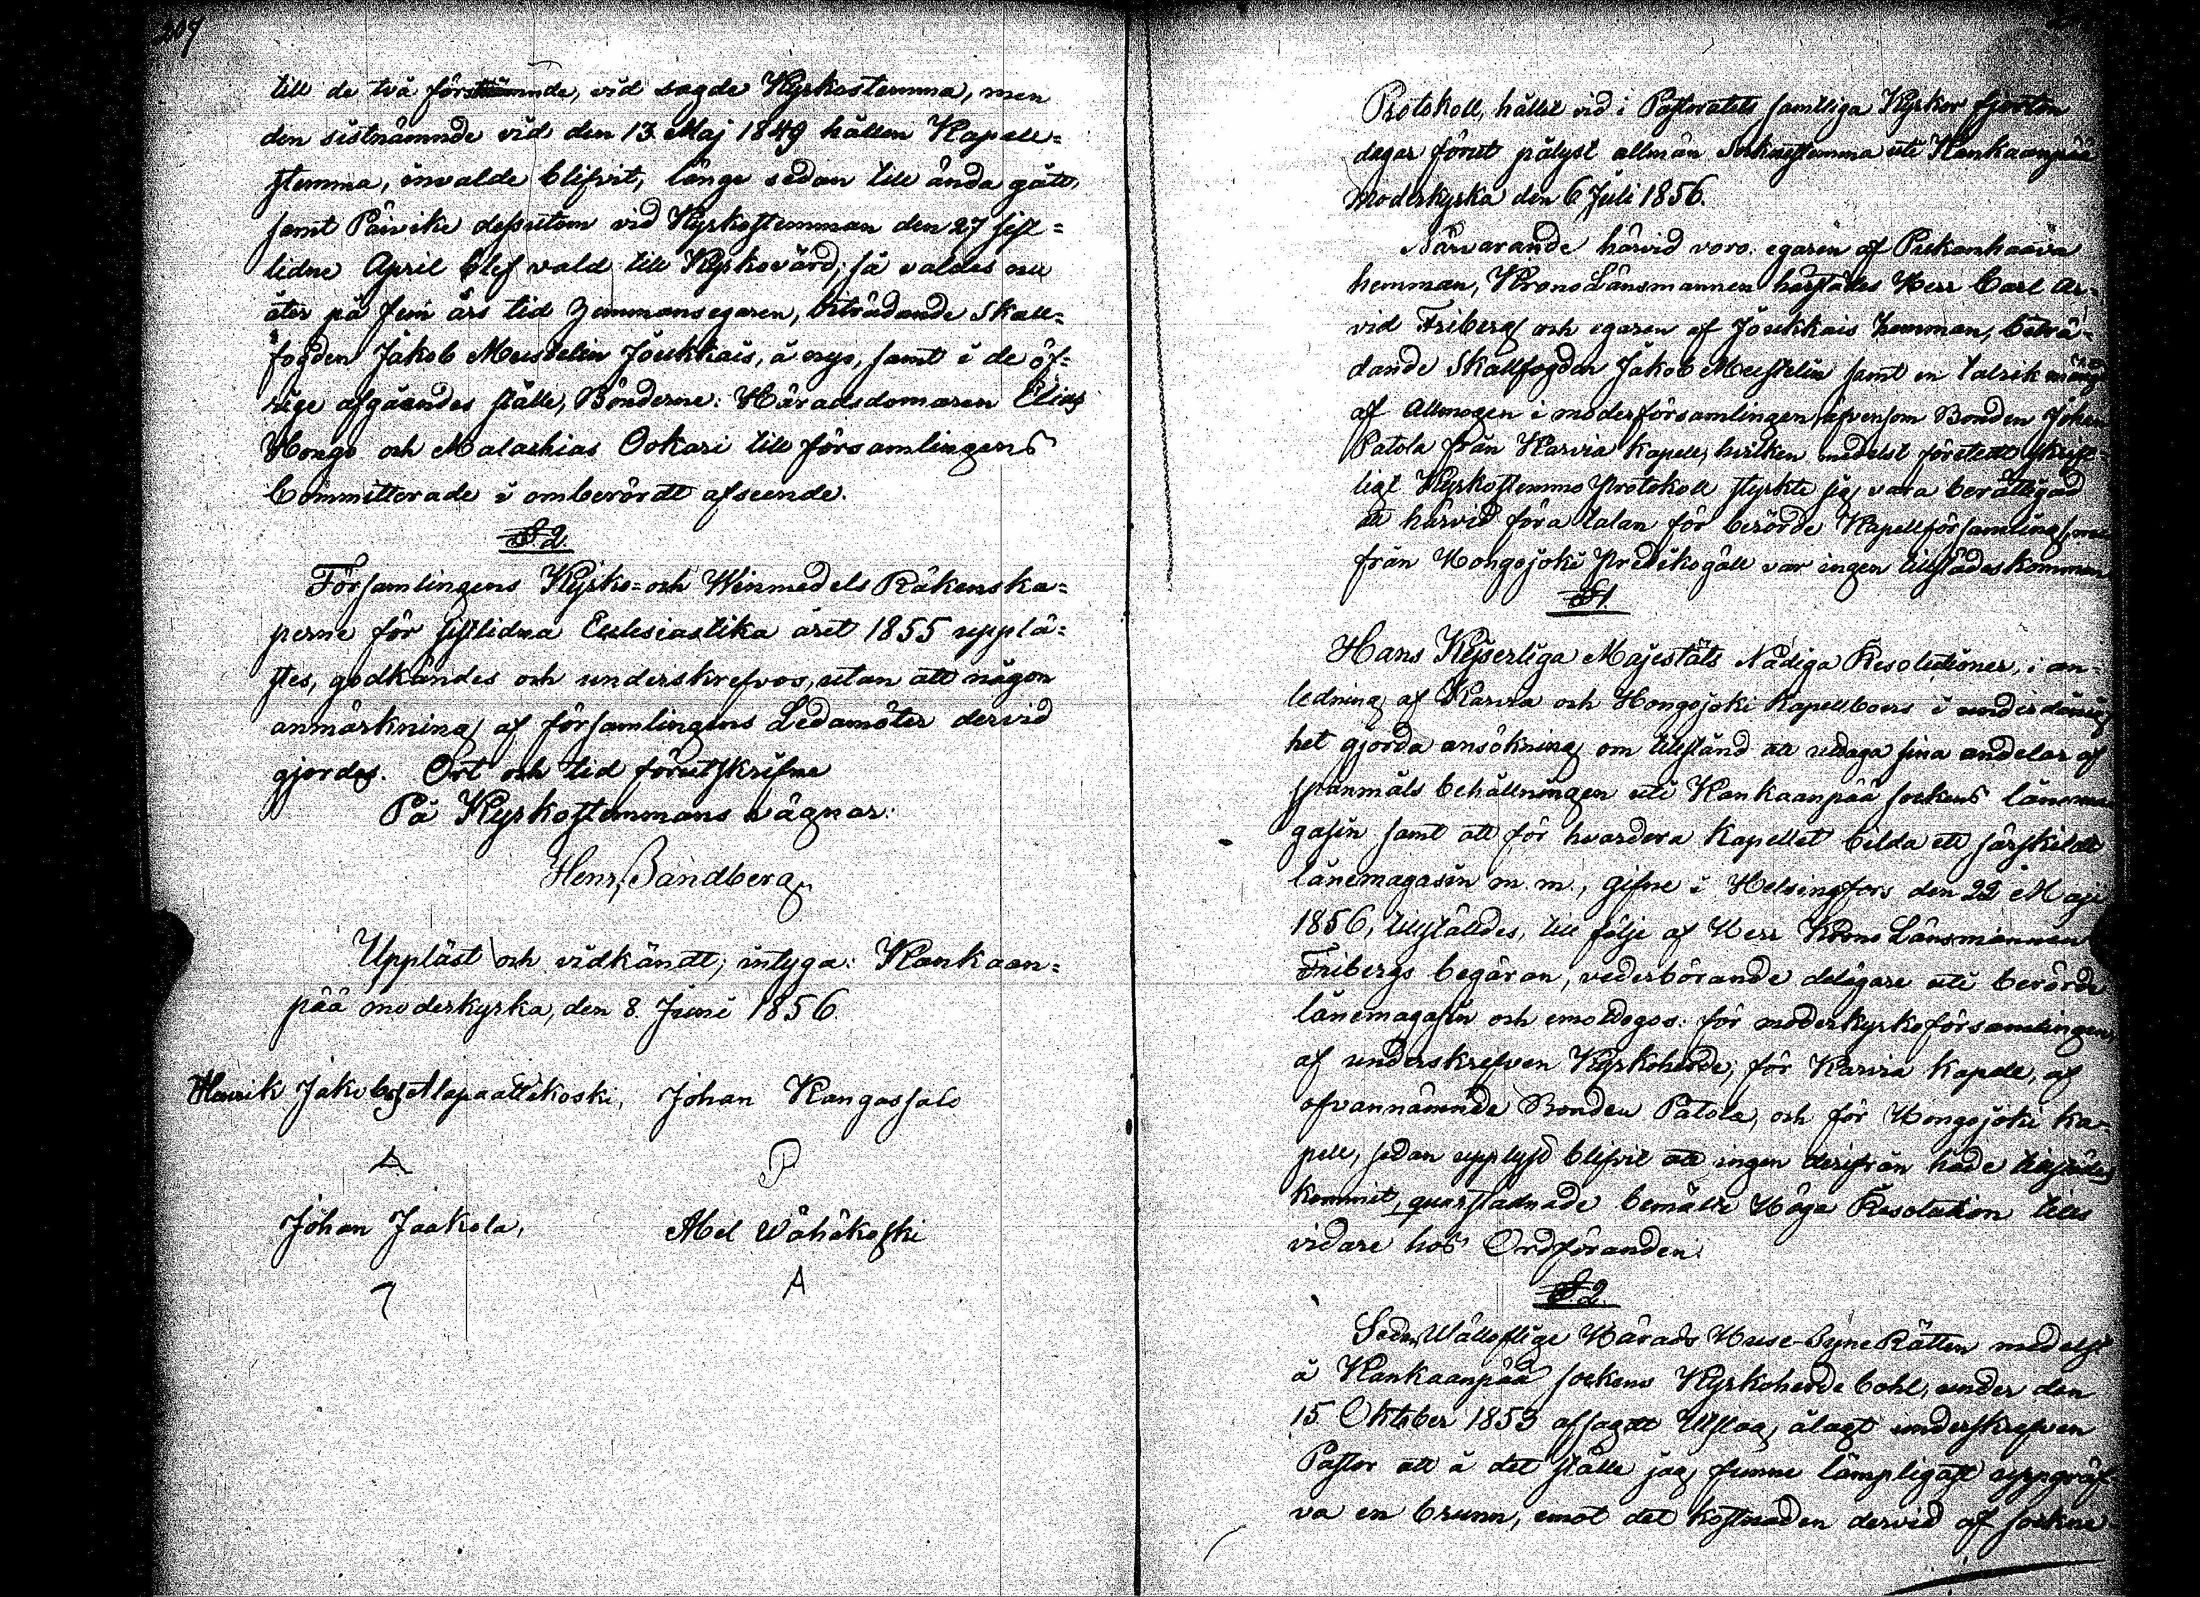 209
till de två förstnämnde, vid sagde Kyrkostemma, men
den sistnämnde vid den 13. Maj 1849 hållen Kapell-
stemma, invalde blifvit, länge sedan till ända gått,
samt Päivike dessutom vid Kyrkostemman den 27 sist-
lidne April blef vald till Kyrkovärd; så valdes nu
åter på fem års tid hemmansegaren, biträdande Skall-
fogden Jakob Mustelin Joukkais, å nyo, samt i de öf-
rige afgåendes ställe, Bönderne: Häradsdomaren Elias
Hongo och Malachias Ookari till församlingens
Committerade i omberördt afseende.
§. 2.
Församlingens Kyrko- och Winmedels Räkenska-
perne för sistlidna Ecclesiastika året 1855 upplä-
stes, godkändes och underskrefvos, utan att någon
anmärkning af församlingens Ledamöter dervid
gjordes. Ort och tid förutskrifne
På Kyrkostemmans vägnar:
Henr. Sandberg
Uppläst och vidkändt, intyga: Kankaan-
pää moderkyrka, den 8. Juni 1856.
Henrik Jakobsson Alapaattikoski, Johan Kangassalo
A P
Johan Jaakola, Abel Wähäkoski
7 A
Protokoll, hållet vid i Pastoratets samtliga Kyrkor fjorton
dagar förut pålyst allmän Sockenstemma uti Kankaanpää
Moderkyrka den 6 Juli 1856.
Närvarande härvid voro: egaren af Piekanhaava
hemman, KronoLänsmannen härstädes Herr Carl Ar-
vid Friberg och egaren af Joukkais hemman, biträ-
dande Skallfogden Jakob Mustelin samt en talrik mängd
af Allmogen i moderförsamlingen, äfvensom Bonden Johan
Patola från Karvia Kapell, hvilken medelst företedt skrift-
ligt Kyrkostemmo Protokoll styrkte sig vara berättigad
att härvid föra talan för berörde Kapellförsamling, men
från Hongojoki Predikogäll var ingen tillstädeskommen
§ 1.
Hans Kejserliga Majestäts Nådiga Resolutioner, i an-
ledning af Karvia och Hongojoki Kapellboers i underdånig-
het gjorda ansökning om tillstånd att uttaga sina andelar af
spanmåls behållningen uti Kankaanpää sockens lånema-
gasin samt att för hvardera Kapellet bilda ett särskildt
lånemagasin m. m., gifne i Helsingfors den 22 Maji
1856, tillställdes, till följe af Herr Krono Länsmannen
Fribergs begäran, vederbörande delägare uti berörde
lånemagasin och emottogos: för moderkyrkoförsamlingen,
af underskrefven Kyrkoherde; för Karvia Kapell, af
ofvannämnde Bonden Patola, och för Hongojoki Ka-
pell, sedan upplyst blifvit att ingen derifrån hade tillstädes
kommit, quarstadnade bemälte Höga Resolution tills
vidare hos Ordföranden.
§ 2.
Sedan Wällofliga Härads Huse-Syne Rätten medelst
å Kankaanpää sockens Kyrkoherde bohl, under den
15 Oktober 1853 afsagdt Utslag, ålagt underskrefven
Pastor att å det ställe jag funne lämpligast uppgräf-
va en brunn, emot det kostnaden dervid af sockne-